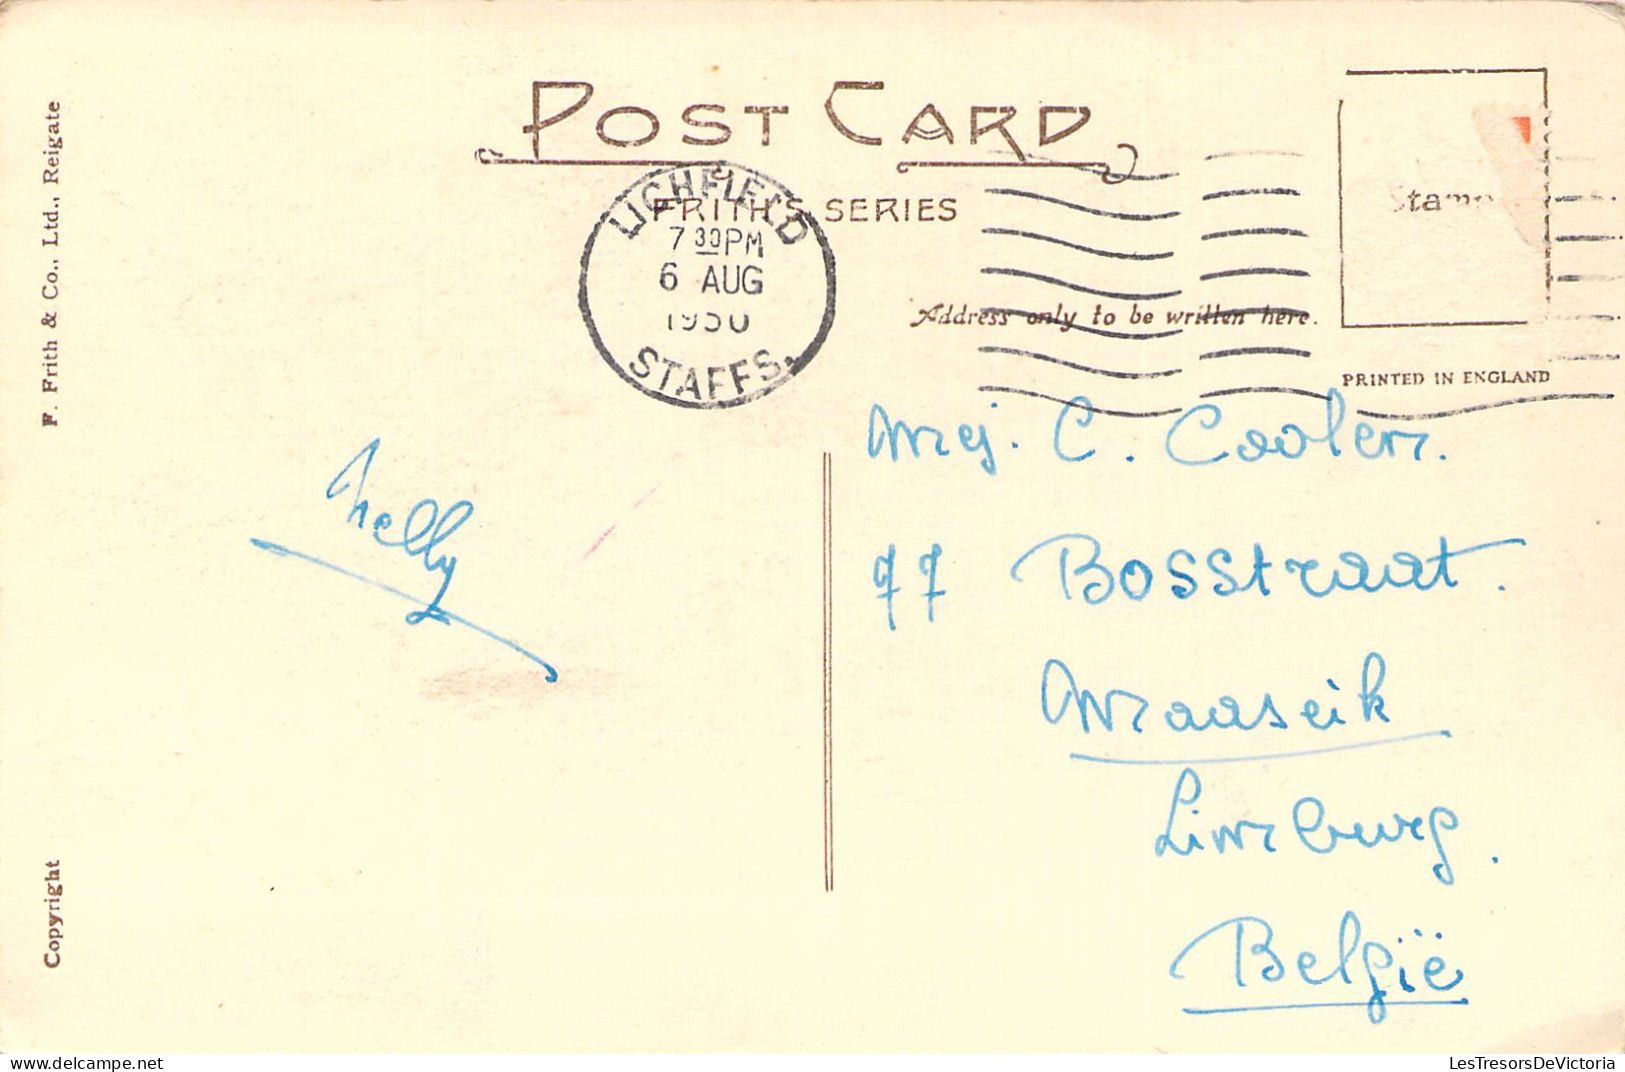 POST CARD
FRITH'S SERIES
LICHFIELD
7 30 PM
6 AUG
1950
STAFFS.
Stamp
Address only to be written here.
PRINTED IN ENGLAND
F. Frith & Co., Ltd., Reigate
Copyright
Nelly
Mej. C. Coolen.
77 Bosstraat.
Maaseik
Limburg.
België
LesTresorsDeVictoria